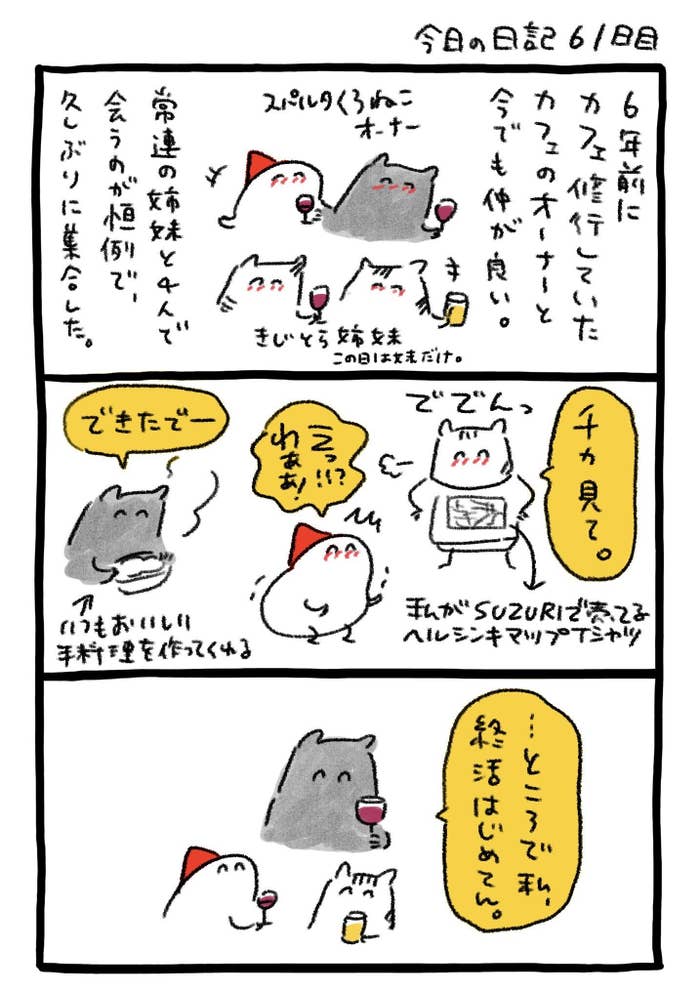 今日の日記 61日目
6年前に
カフェ修行していた
カフェのオーナーと
今でも仲が良い。
スパルタくろねこ
オーナー
常連の姉妹と4人で
会うのが恒例で、
久しぶりに集合した。
きじとら姉妹
この日は妹だけ。
チカ見て。
ででんっ
まんがSUZURIで売ってる
ヘルシンキマップTシャツ
えっ!!?
わぁぁ!
できたでー
いつもおいしい
手料理を作ってくれる
…ところで私、
終活はじめてん。